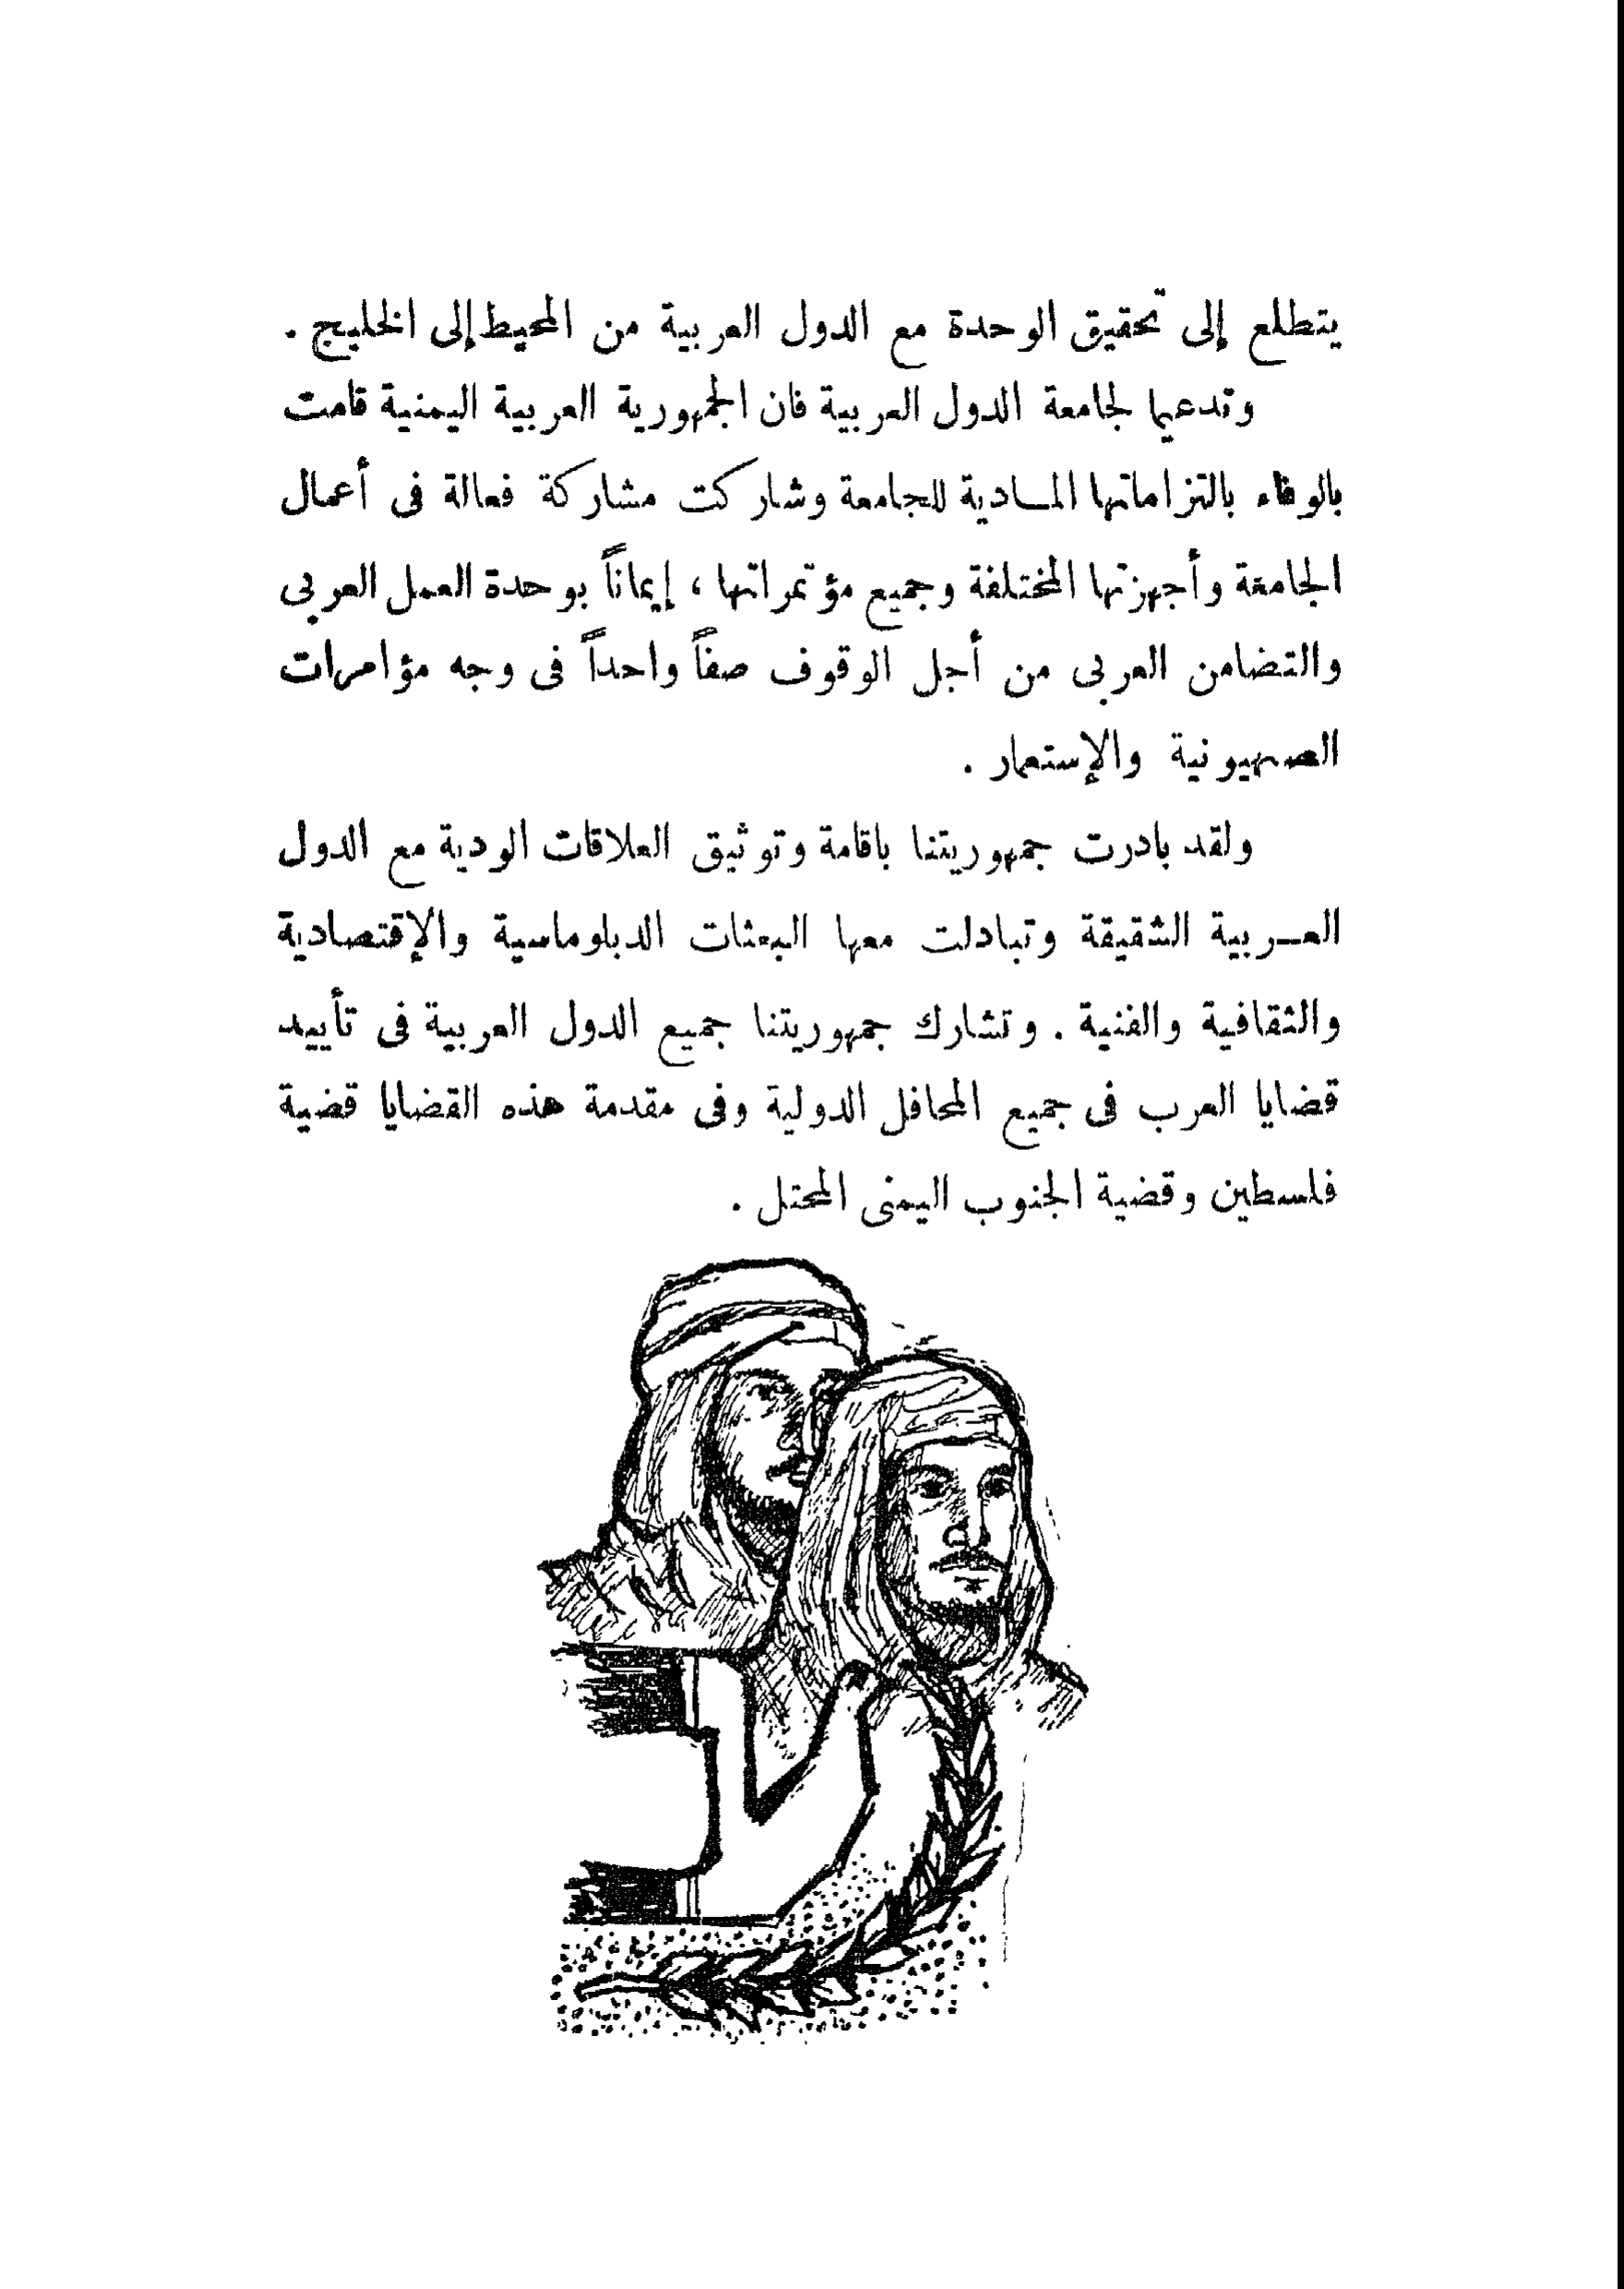 يتطلع إلى تحقيق الوحدة مع الدول العربية من المحيط إلى الخليج .
وتدعيما لجامعة الدول العربية فان الجمهورية العربية اليمنية قامت
بالوفاء بالتزاماتها المــادية للجامعة وشاركت مشاركة فعالة فى أعمال
الجامعة وأجهزتها المختلفة وجميع مؤتمراتها ، إيماناً بوحدة العمل العربى
والتضامن العربى من أجل الوقوف صفاً واحداً فى وجه مؤامرات
الصهيونية والإستعمار .
ولقد بادرت جمهوريتنا باقامة وتوثيق العلاقات الودية مع الدول
العــربية الشقيقة وتبادلت معها البعثات الدبلوماسية والإقتصادية
والثقافية والفنية . وتشارك جمهوريتنا جميع الدول العربية فى تأييد
قضايا العرب فى جميع المحافل الدولية وفى مقدمة هذه القضايا قضية
فلسطين وقضية الجنوب اليمنى المحتل .